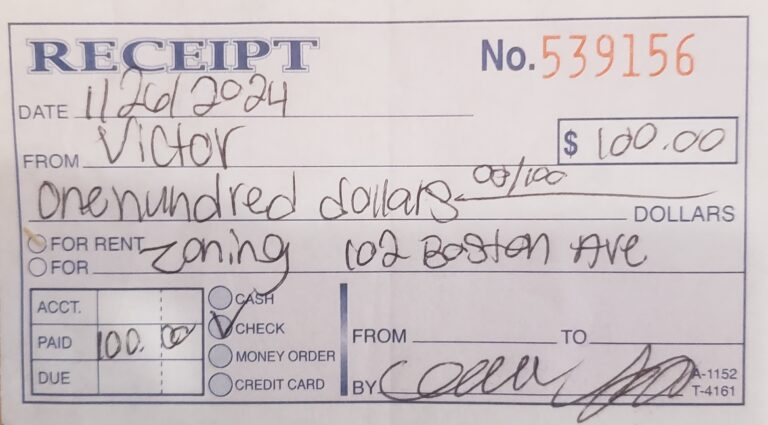 RECEIPT No. 539156
DATE 1/26/2024
FROM Victor $ 100.00
one hundred dollars 00/100 DOLLARS
FOR RENT
FOR zoning 102 Boston Ave
ACCT. CASH
PAID 100.00 CHECK
MONEY ORDER
DUE CREDIT CARD
FROM TO
BY A-1152
T-4161